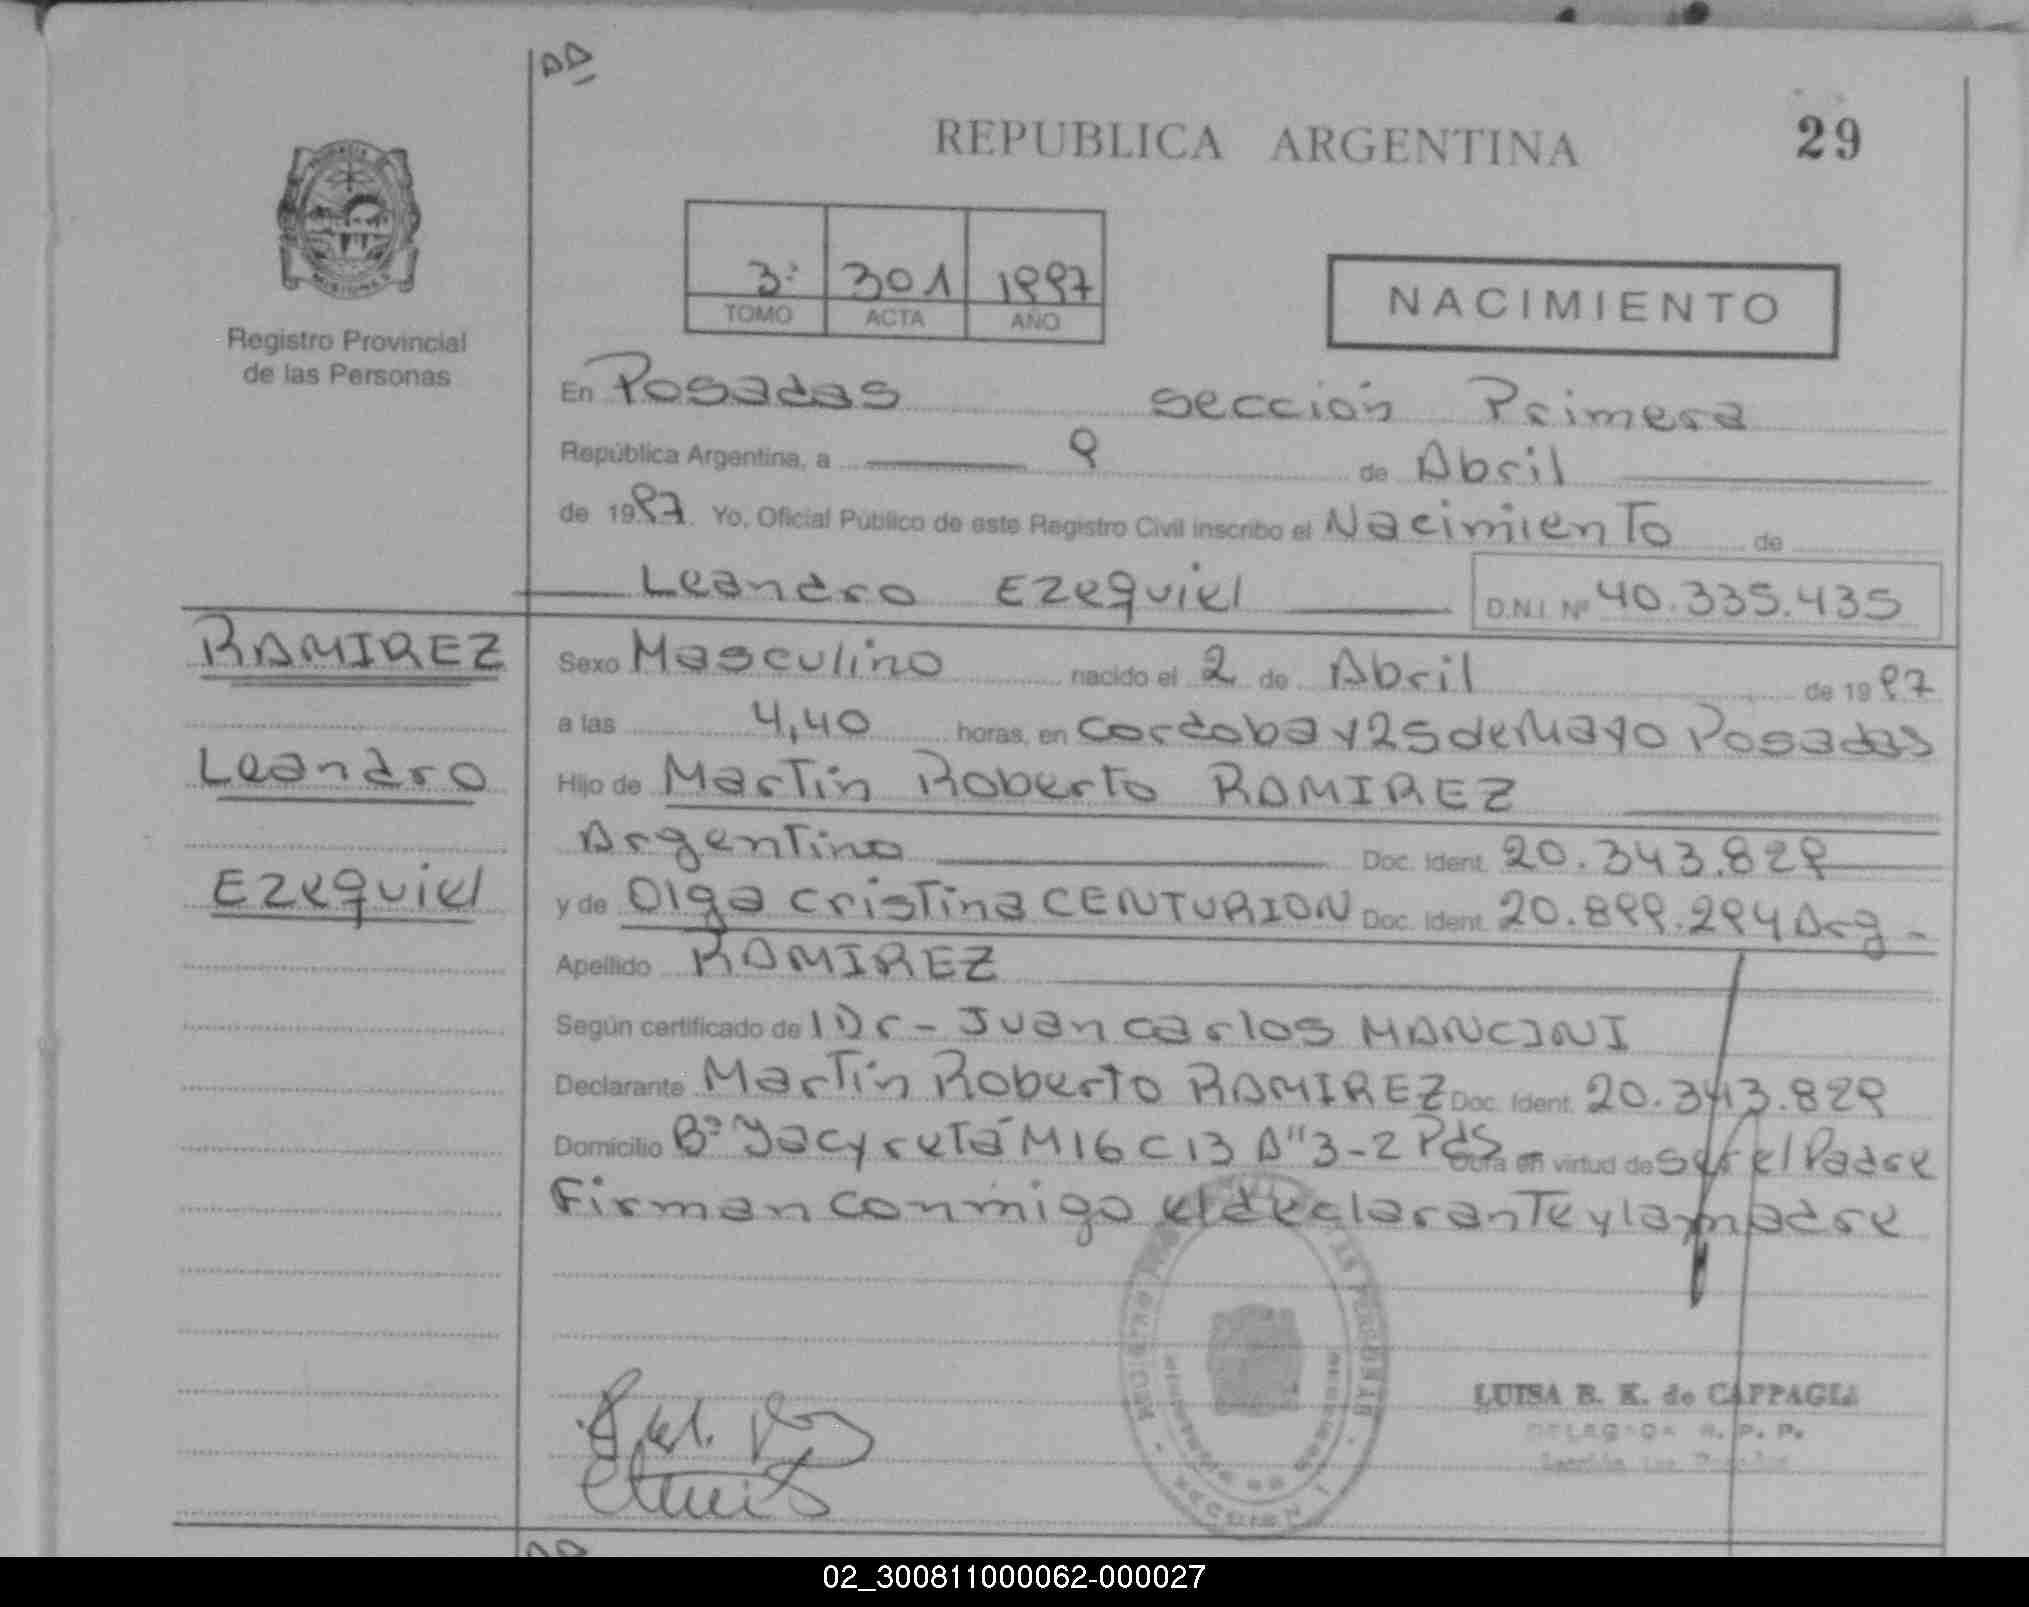 REPUBLICA ARGENTINA
29
3º 301 1997
TOMO ACTA AÑO
NACIMIENTO
Registro Provincial
de las Personas
En Posadas sección Primera
República Argentina, a 9 de Abril
de 1997 Yo, Oficial Público de este Registro Civil inscribo el Nacimiento de
Leandro Ezequiel D.N.I. Nº 40.335.435
RAMIREZ
Leandro
Ezequiel
Sexo Masculino nacido el 2 de Abril de 1997
a las 4,40 horas, en Cordoba y 25 de Mayo Posadas
Hijo de Martín Roberto RAMIREZ
Argentino Doc. Ident. 20.343.829
y de Olga Cristina CENTURION Doc. Ident. 20.899.294 Arg.-
Apellido RAMIREZ
Según certificado de Dr- Juan Carlos MANCINI
Declarante Martín Roberto RAMIREZ Doc. Ident. 20.343.829
Domicilio Bº Yacyretá M16 C13 A"3-2 Pds Obra en virtud de ser el Padre
Firman conmigo el declarante y la madre
LUISA B. K. de CAPPAGLI
DELEGADA R. P. P.
02_300811000062-000027